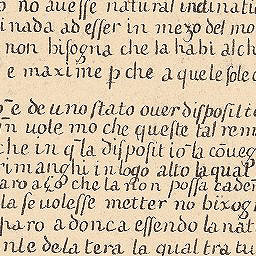 no avesse natural inclinati
inada ad esser in mezo del mo
non bisogna che la habi alch
e maxime p che a quele sole c
e de uno stato over disposit
n vole mo che queste tal rem
che in q̄la disposit iō la cōveg
rimanghi in logo alto la qual
aro a ço che la non possa cader
la se volesse metter no bixog
paro adonca essendo la nat
nte de la tera la qual tra tu